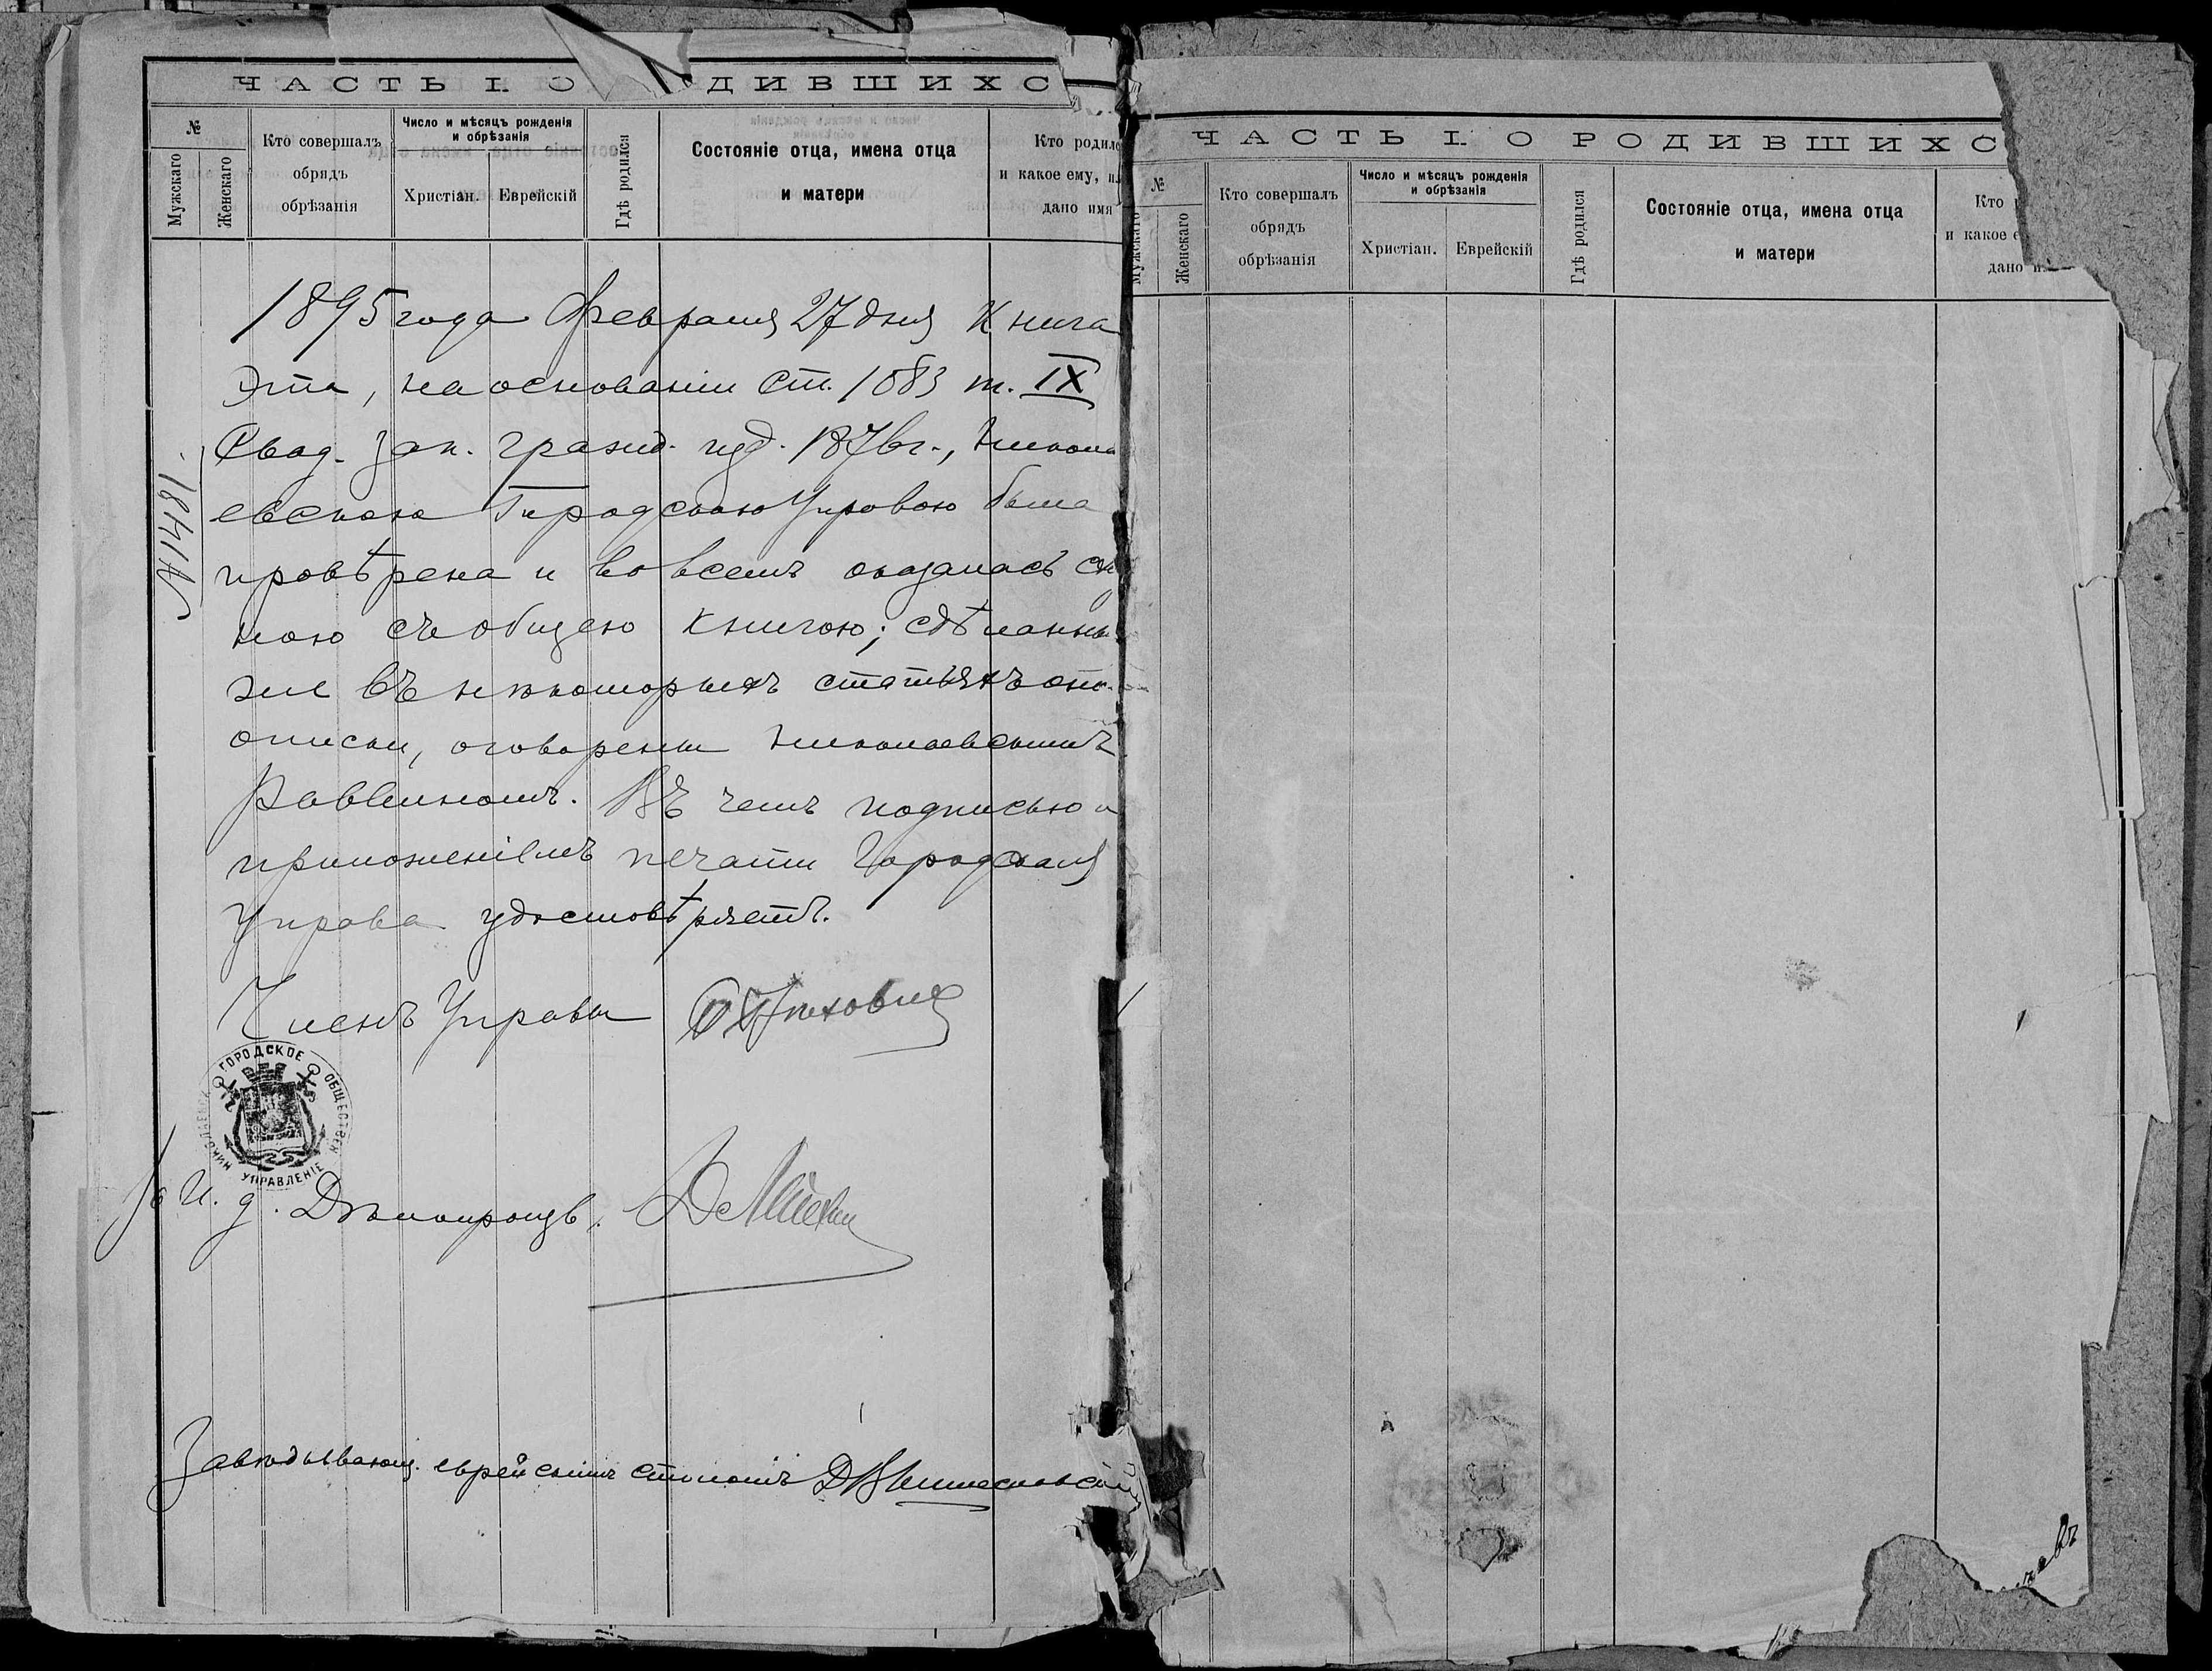 ЧАСТЬ I. О ДИВШИХС
№
Мужскаго
Женскаго
Кто совершалъ
обрядъ
обрѣзанія
Число и мѣсяцъ рожденія
и обрѣзанія
Христіан.
Еврейскій
Гдѣ родился
Состояніе отца, имена отца
и матери
Кто родилс
и какое ему, ил
дано имя
1895 года Февраля 27 дня Книга
эта, на основаніи ст. 1083 т. IX
Свод. Зак. гражд. изд. 1876 г., Никола
евскою Городскою Управою была
провѣрена и во всемъ оказалась сход
ною съ общею книгою; сдѣланны
же въ нѣкоторыхъ статьяхъ
описки, оговорены Николаевскимъ
Раввиномъ. Въ чемъ подписью и
приложеніемъ печати Городская
Управа удостовѣряетъ.
№ 1481
Членъ Управы
ГОРОДСКОЕ ОБЩЕСТВЕН УПРАВЛЕНІЕ НИКОЛАЕВСК
И. д. Дѣлопроизв.
Завѣдывающ. еврейскимъ столомъ
ЧАСТЬ I. О РОДИВШИХС
№
Мужскаго
Женскаго
Кто совершалъ
обрядъ
обрѣзанія
Число и мѣсяцъ рожденія
и обрѣзанія
Христіан.
Еврейскій
Гдѣ родился
Состояніе отца, имена отца
и матери
Кто
и какое е
дано